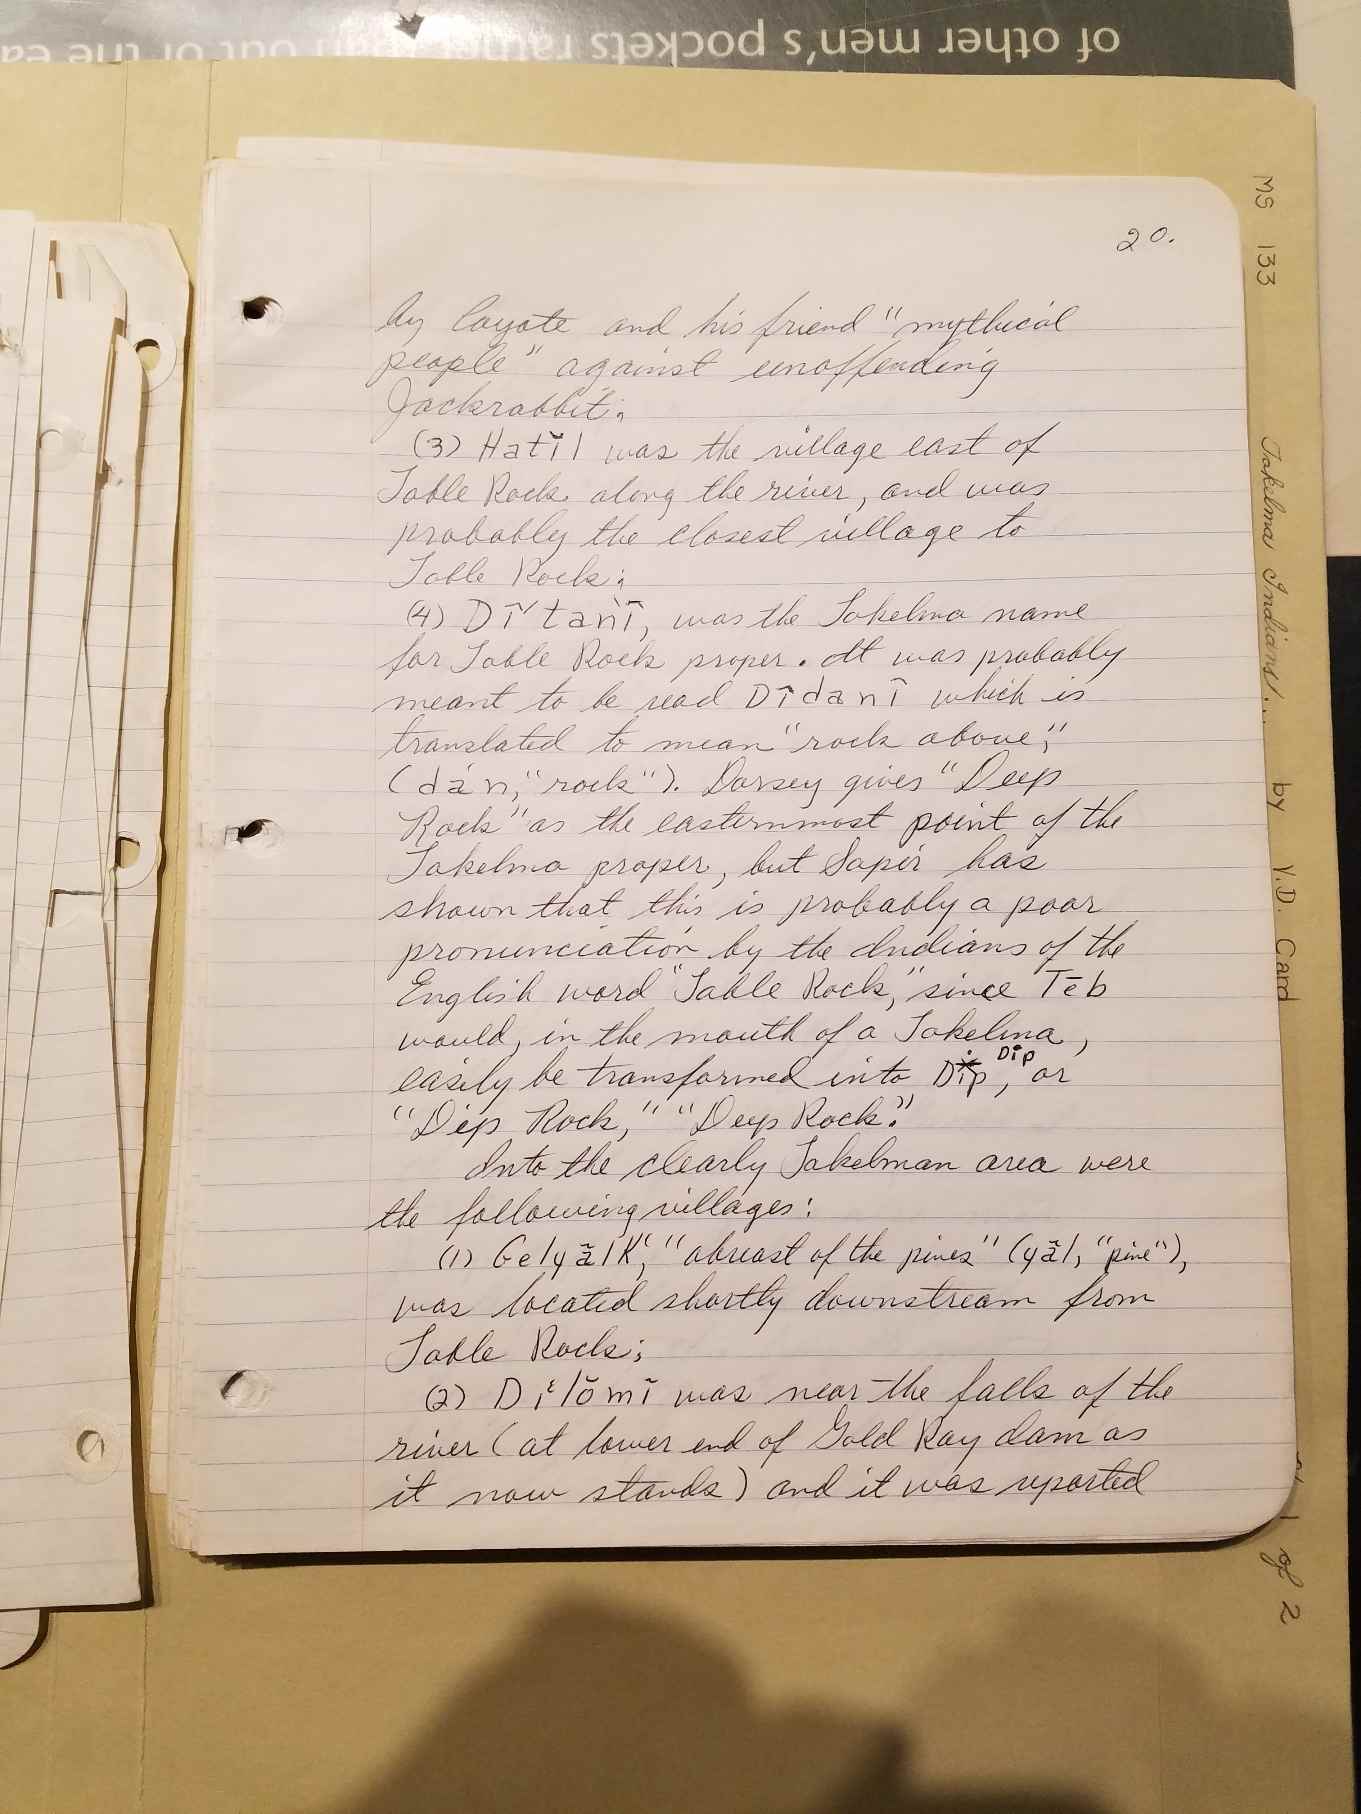 of other men's pockets rather than out of the ea
MS 133
Takelma Indians!... by V.D. Card
1 of 2
20.
by Coyote and his friend "mythical
people" against unoffending
Jackrabbit;
(3) Hatĭl was the village east of
Table Rock along the river, and was
probably the closest village to
Table Rock;
(4) Dī'tanī, was the Takelma name
for Table Rock proper. It was probably
meant to be read Dîdanî which is
translated to mean "rock above,"
(dán, "rock"). Dorsey gives "Deep
Rock" as the easternmost point of the
Takelma proper, but Sapir has
shown that this is probably a poor
pronunciation by the Indians of the
English word "Table Rock," since Tēb
would, in the mouth of a Takelma,
easily be transformed into Dip, or
"Dip Rock," "Deep Rock."
Into the clearly Takelman area were
the following villages:
(1) GelyãlK', "abreast of the pines" (yãl, "pine"),
was located shortly downstream from
Table Rock;
(2) Dĭ'lŏmĭ was near the falls of the
river (at lower end of Gold Ray dam as
it now stands) and it was reported